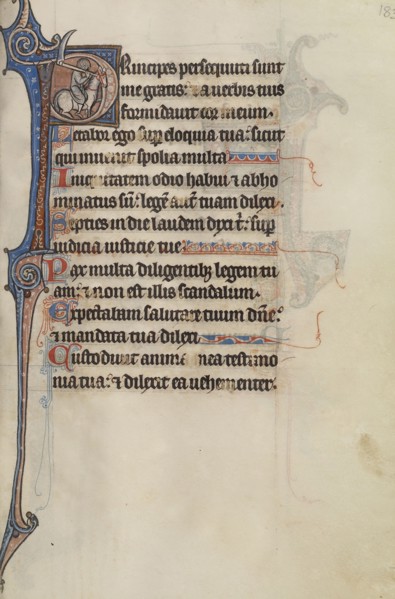 183
Principes persequuti sunt
me gratis: ⁊ a verbis tuis
formidavit cor meum.
Letabor ego sup eloquia tua: sicut
qui invenit spolia multa
Iniquitatem odio habui ⁊ abho
minatus sū: legē aūt tuam dilexi.
Septies in die laudem dixi t: sup
iudicia iusticie tue
Pax multa diligentib; legem tu
am: ⁊ non est illis scandalum.
Expectabam salutare tuum dñe:
⁊ mandata tua dilexi
Custodivit anima mea testimo
nia tua: ⁊ dilexit ea vehementer.